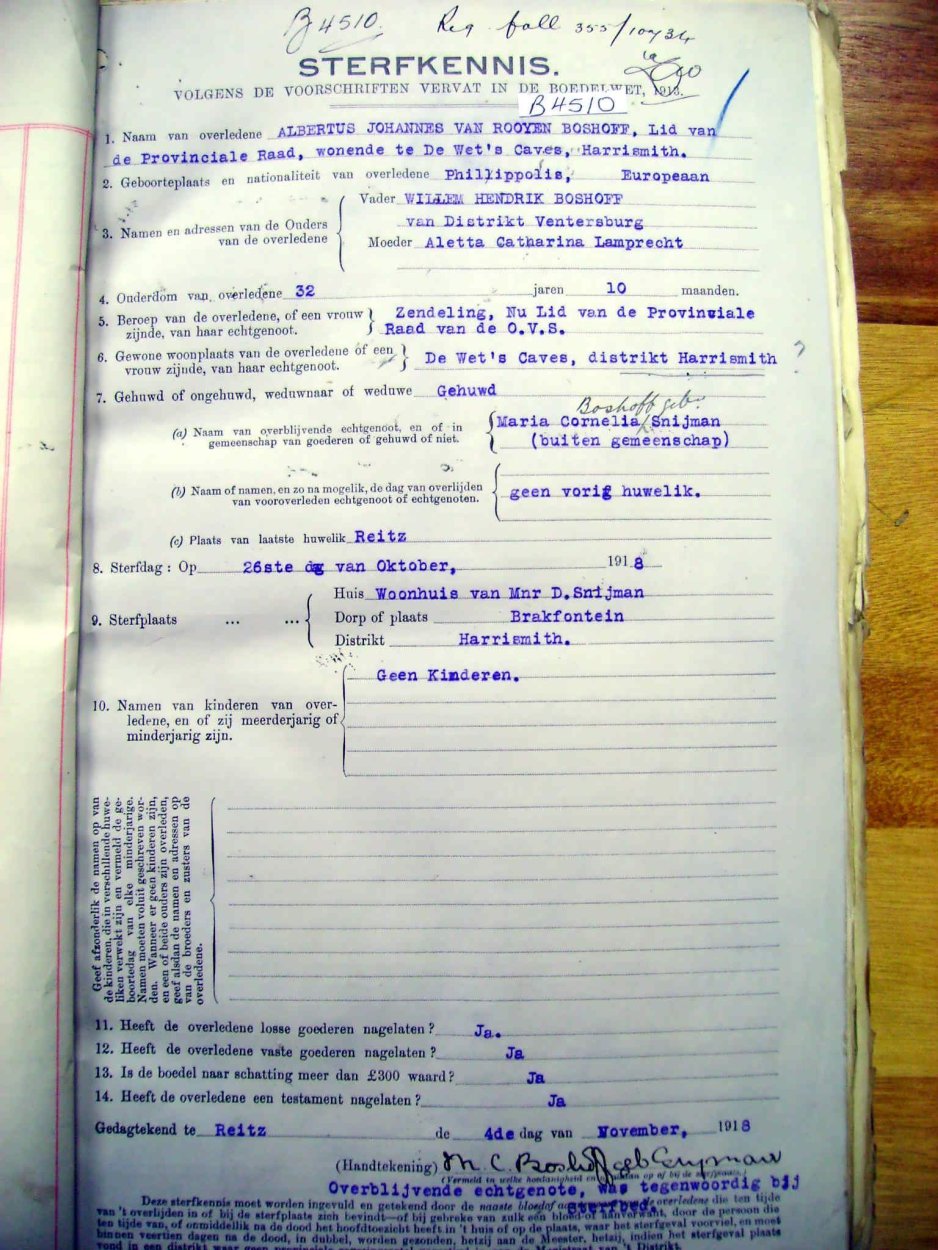 B 4510. Reg fall 355/10734
STERFKENNIS.
VOLGENS DE VOORSCHRIFTEN VERVAT IN DE BOEDELWET, 1913.
B4510
1. Naam van overledene ALBERTUS JOHANNES VAN ROOYEN BOSHOFF, Lid van
de Provinciale Raad, wonende te De Wet's Caves, Harrismith.
2. Geboorteplaats en nationaliteit van overledene Phillippolis, Europeaan
3. Namen en adressen van de Ouders van de overledene
Vader WILLEM HENDRIK BOSHOFF
van Distrikt Ventersburg
Moeder Aletta Catharina Lamprecht
4. Ouderdom van overledene 32 jaren 10 maanden.
5. Beroep van de overledene, of een vrouw } Zendeling, Nu Lid van de Provinsiale
zijnde, van haar echtgenoot. Raad van de O.V.S.
6. Gewone woonplaats van de overledene of een } De Wet's Caves, distrikt Harrismith ?
vrouw zijnde, van haar echtgenoot.
7. Gehuwd of ongehuwd, weduwnaar of weduwe Gehuwd
Boshoff geb
(a) Naam van overblijvende echtgenoot, en of in { Maria Cornelia Snijman
gemeenschap van goederen of gehuwd of niet. (buiten gemeenschap)
(b) Naam of namen, en zo na mogelik, de dag van overlijden { geen vorig huwelik.
van vooroverleden echtgenoot of echtgenoten.
(c) Plaats van laatste huwelik Reitz
8. Sterfdag: Op 26ste dag van Oktober, 1918
9. Sterfplaats ... ...
Huis Woonhuis van Mnr D.Snijman
Dorp of plaats Brakfontein
Distrikt Harrismith.
Geen Kinderen.
10. Namen van kinderen van over-
ledene, en of zij meerderjarig of
minderjarig zijn.
Geef afzonderlik de namen op van
de kinderen, die in verschillende huwe-
liken verwekt zijn en vermeld de ge-
boortedag van elke minderjarige.
Namen moeten voluit geschreven wor-
den. Wanneer er geen kinderen zijn,
en een of beide ouders zijn overleden,
geef alsdan de namen en adressen op
van de broeders en zusters van de
overledene.
11. Heeft de overledene losse goederen nagelaten? Ja.
12. Heeft de overledene vaste goederen nagelaten? Ja
13. Is de boedel naar schatting meer dan £300 waard? Ja
14. Heeft de overledene een testament nagelaten? Ja
Gedagtekend te Reitz de 4de dag van November, 1918
(Handtekening) M. C. Boshoff geb Snyman
(Vermeld in welke hoedanigheid en of bij de sterfplaats.)
Overblijvende echtgenote, was tegenwoordig bij
sterfbed.
Deze sterfkennis moet worden ingevuld en getekend door de naaste bloed of aanverwant van de overledene die ten tijde
van 't overlijden in of bij de sterfplaats zich bevindt—of bij gebreke van zulk een bloed- of aanverwant, door de persoon die
ten tijde van, of onmiddellik na de dood het hoofdtoezicht heeft in 't huis of op de plaats, waar het sterfgeval voorviel, en moet
binnen veertien dagen na de dood, in dubbel, worden gezonden, hetzij aan de Meester, hetzij, indien het sterfgeval plaats
vond in een distrikt waar geen